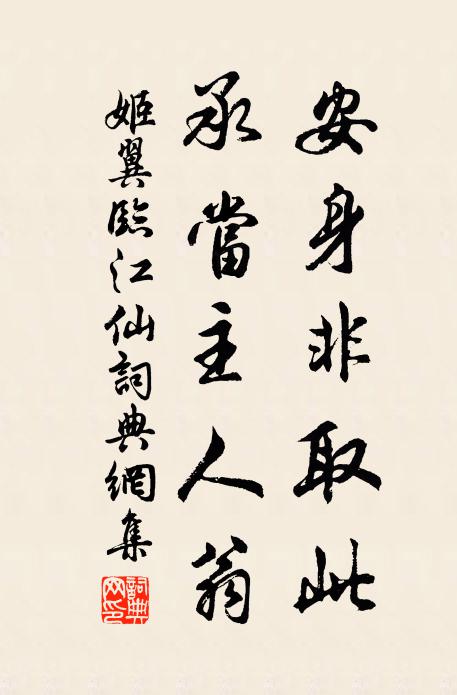 安身非取此
承當主人翁
姬翼臨江仙詞典網集
詞典網印